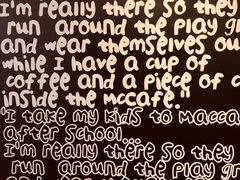 I'm really there so they
run around the play gr
and wear themselves ou
while I have a cup of
coffee and a piece of c
inside the mccafe."
"I take my kids to macca
after school...
I'm really there so they
run around the play gr